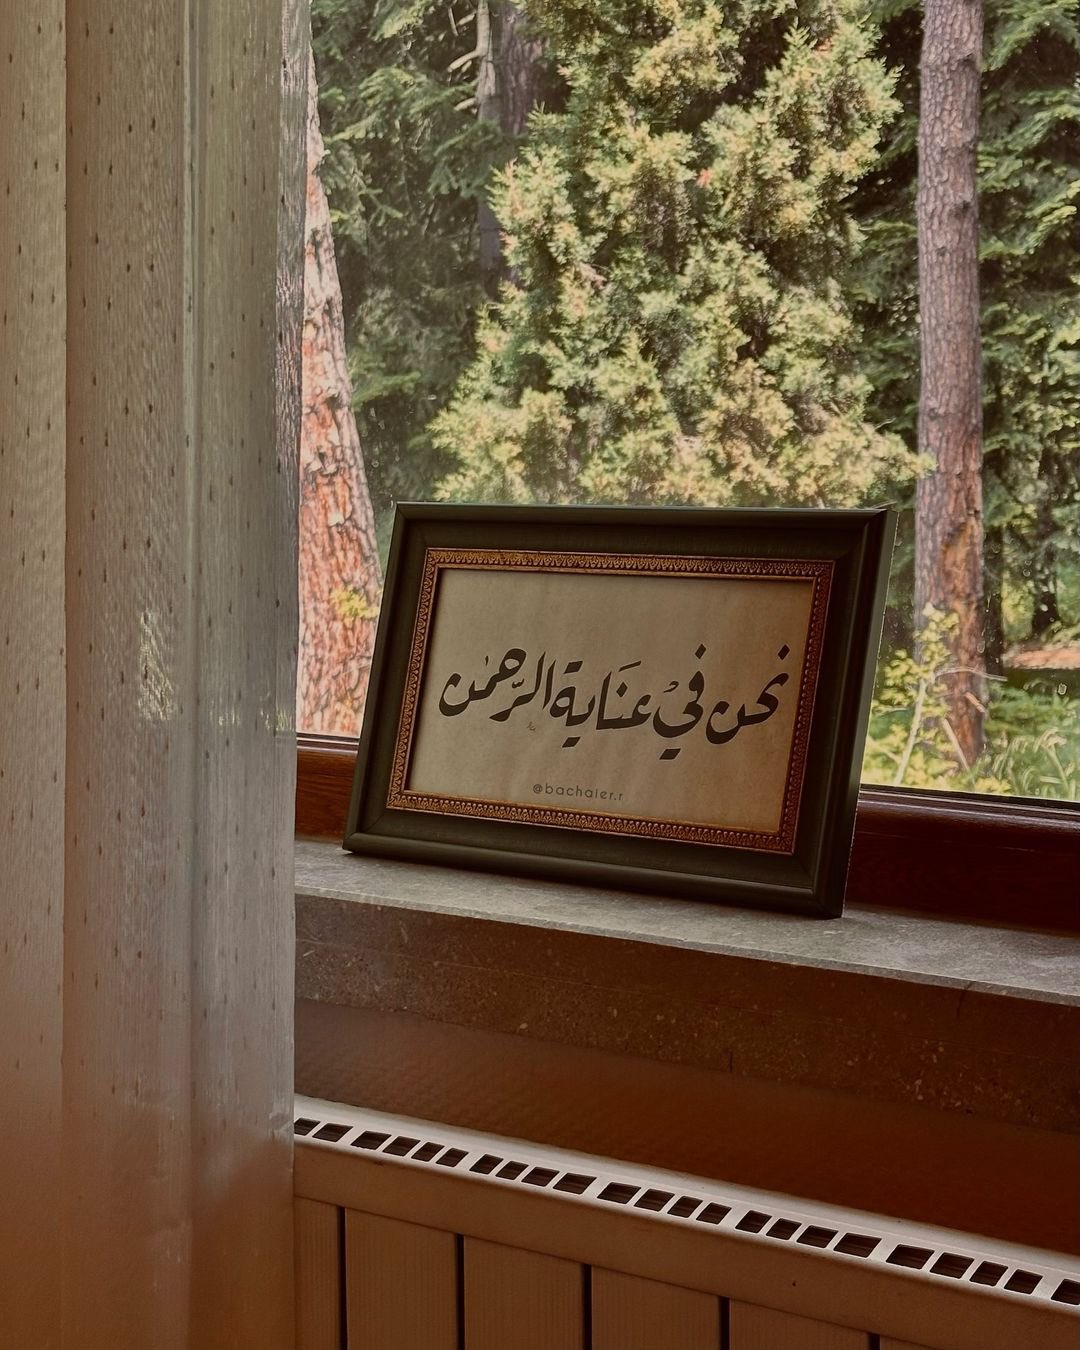 نحن في عنَاية الرَّحمٰن
@bachaier.r